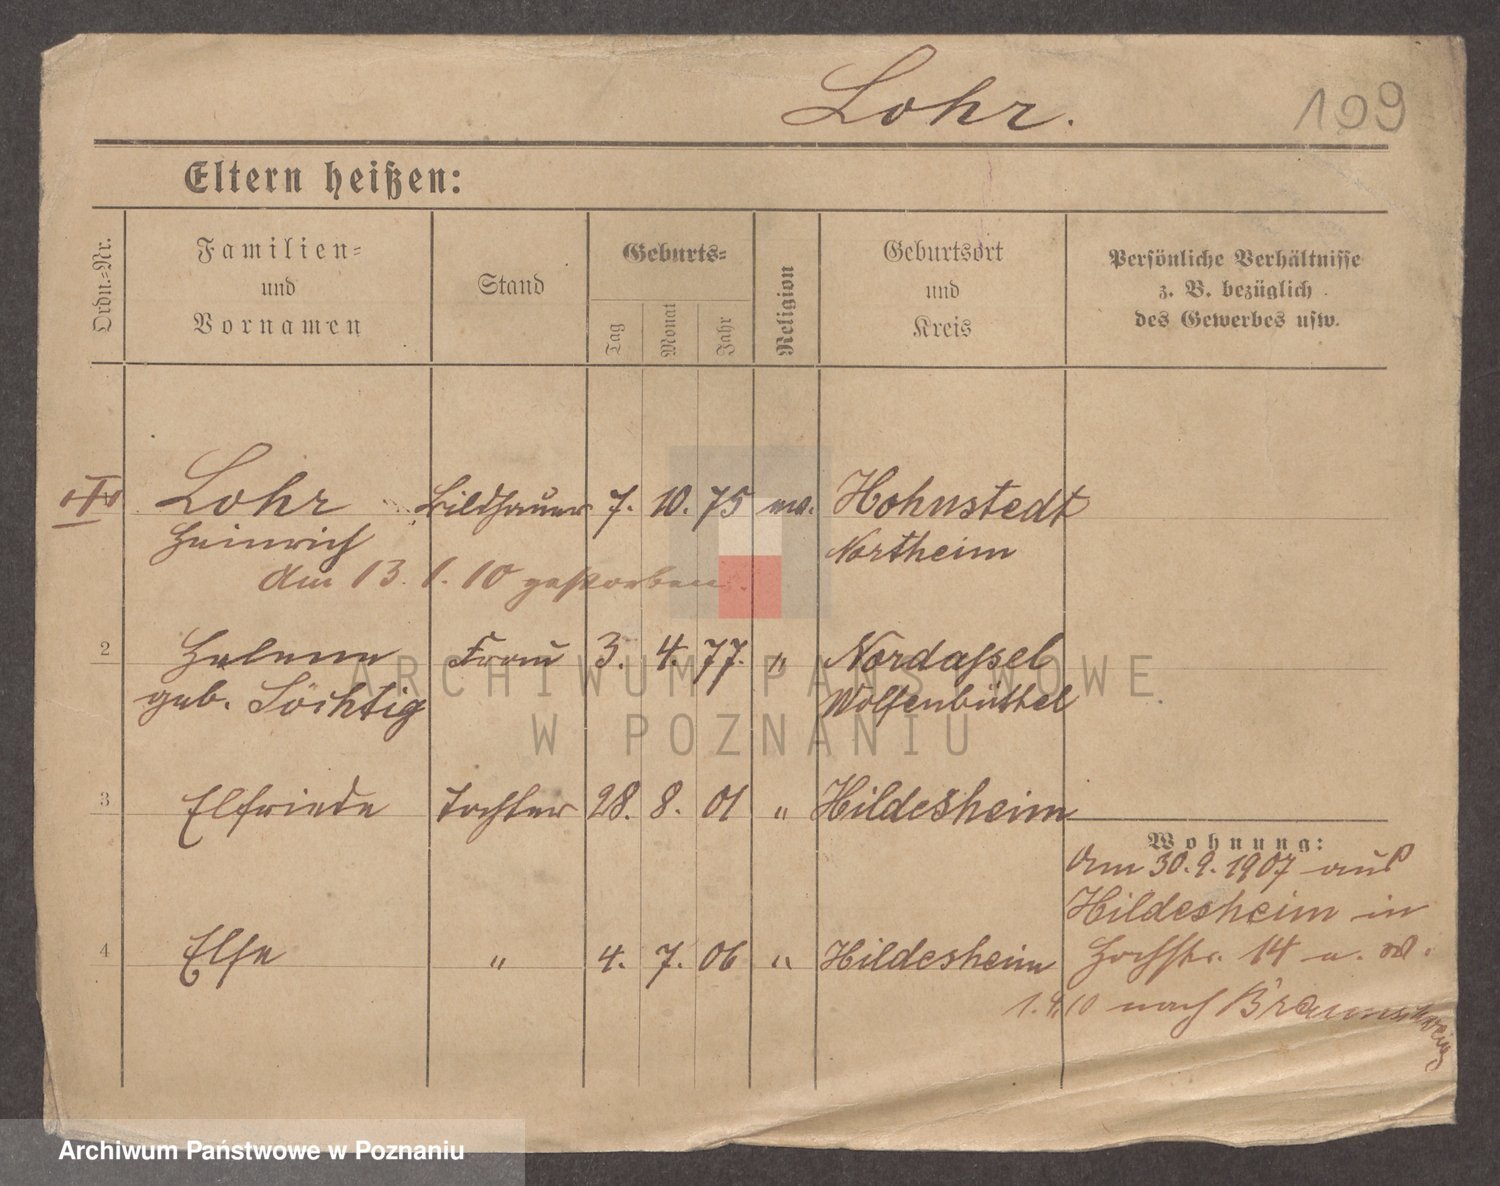 Lohr.
199
Eltern heißen:
Ordn.-Nr.
Familien-
und
Vornamen
Stand
Geburts-
Tag
Monat
Jahr
Religion
Geburtsort
und
Kreis
Persönliche Verhältnisse
z. B. bezüglich
des Gewerbes usw.
Lohr Bildhauer 7. 10. 75 ev. Hohnstedt
Heinrich Northeim
Am 13. 1. 10 gestorben.
2 Helene Frau 3. 4. 77. " Nordassel
geb. Söchtig Wolfenbüttel
3 Elfriede Tochter 28. 8. 01 " Hildesheim
Wohnung:
Am 30.9.1907 aus
Hildesheim in
4 Else " 4. 7. 06 " Hildesheim
Hochstr. 14 a. W.
1.4.10 nach Braunschweig
ARCHIWUM PAŃSTWOWE
W POZNANIU
Archiwum Państwowe w Poznaniu